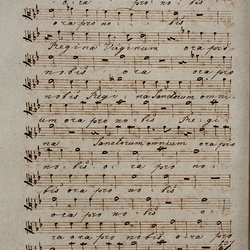 o: ra pro no: bis
ora pro no: bis
Regina Virginum ora pro
nobis ora ora pro
nobis Regi: na Sanctorum omni:
um ora pro no: bis Re: gi:
na Sanctorum omnium
ora pro no: bis
no: bis o: ra pro no:
bis ora pro no: bis
o ra pro no: bis o:
ra pro no: bis